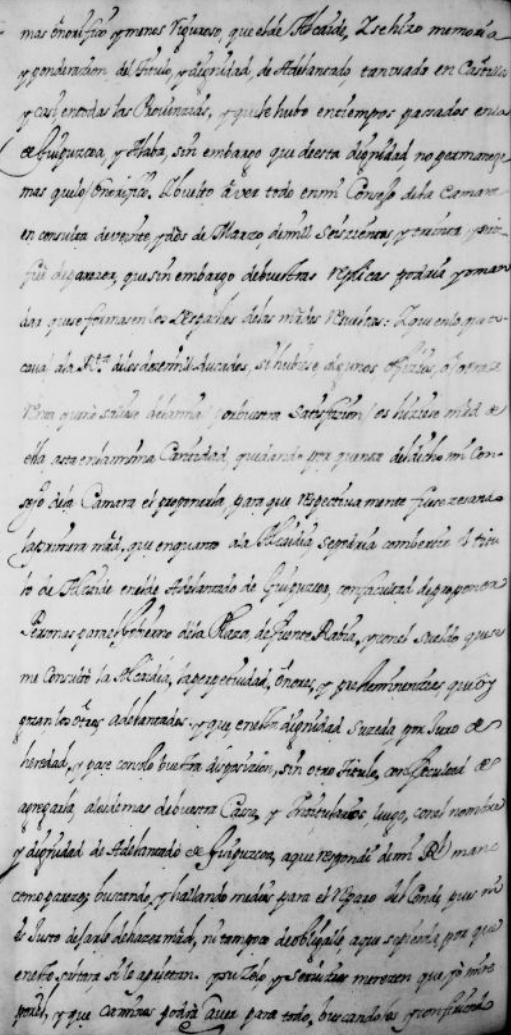 mas onorifico y menos riguroso, que el de Alcaide, Y se hizo memoria
y ponderacion, del titulo, y dignidad, de Adelantado, tan usado en Castilla
y casi en todas las Provinzias, y que le hubo en tiempos passados en la
de Guipuzcoa, y Alaba, sin embargo que de esta dignidad, no permaneze
mas que lo onorifico. Y buelto à ver todo en mi Consejo de la Camara
en consulta de veinte y dos de Marzo, de mill Seiscientos, y treinta y
fue de parezer, que sin embargo de buestras replicas podria yo man
dar que se formasen los Despachos de las mrdes referidas: Y que en lo que to
caua a la Rta de los diez mill Ducados, si hubiese, algunos offizios, ò otra
renta que satisfazion / os hiziese mrd de
ella asta en la misma Cantidad, quedando por quenta del dicho mi Con
sejo de la Camara el proponerla, para que respectiuamente fuese zesando
la primera mrd, que en quanto a la Alcaidia se podria combertir el titu
lo de Alcaide en el de Adelantado de Guipuzcoa, con facultad de proponer
Personas para el gobierno de la Plaza, de fuente Rabia, y con el sueldo que se
me Consultò la Alcaidia, la perpetuidad, onores, y preheminenzias, que oy
gozan los otros Adelantados. y que en esta dignidad suzeda, por Juro de
heredad, y pase con solo buestra disposizion, sin otro Titulo, con facultad de
agregarla, a lo demas de buestra Casa, y Yntitularos luego, con el nombre
y dignidad de Adelantado de Guipuzcoa, a que respondi de mi Rl mano
como pareze, buscando, y hallando medios para el reparo del Conde, pues ni
es Justo dejarle de hazer mrd, ni tampoco de obligalle a que se pierda, por que
en esto faltara si le aprietan. y su zelo, y seruizios merezen que yo mire
por el, y que caminos podra auer para todo, buscandolos y confiriendo